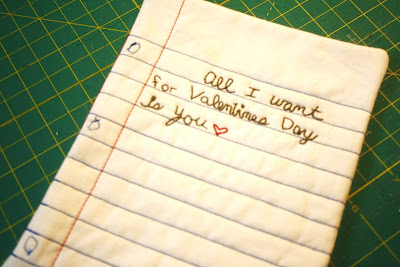 All I want
for Valentines Day
Is you ♡